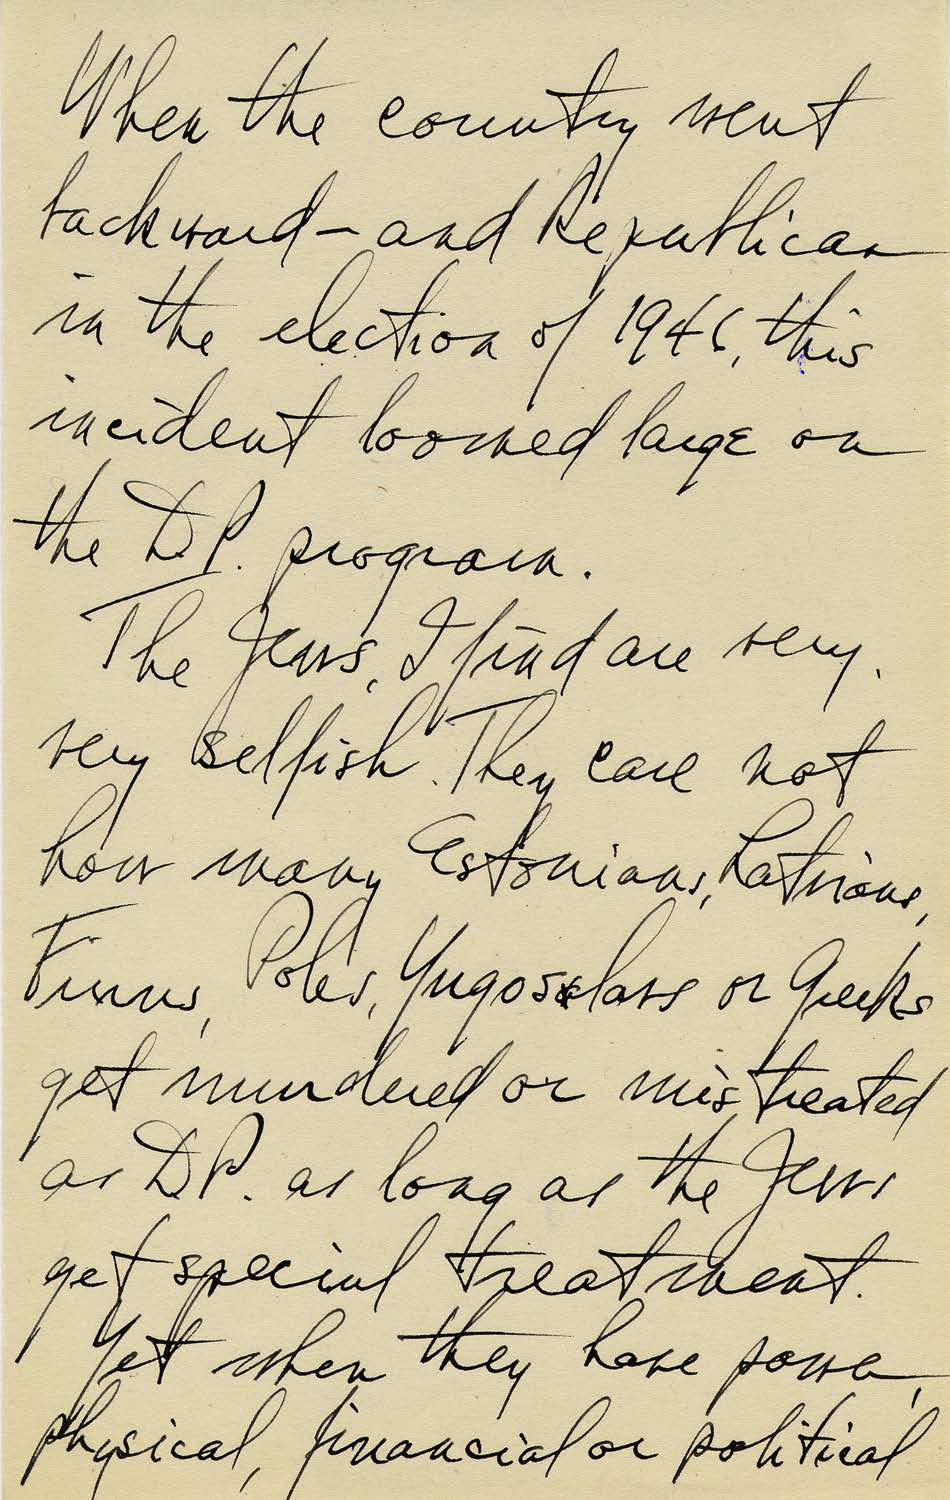 When the country went
backward – and Republican
in the election of 1946, this
incident loomed large on
the D.P. program.
The Jews, I find are very,
very selfish. They care not
how many Estonians, Latvians,
Finns, Poles, Yugoslavs or Greeks
get murdered or mistreated
as D.P. as long as the Jews
get special treatment.
Yet when they have power,
physical, financial or political